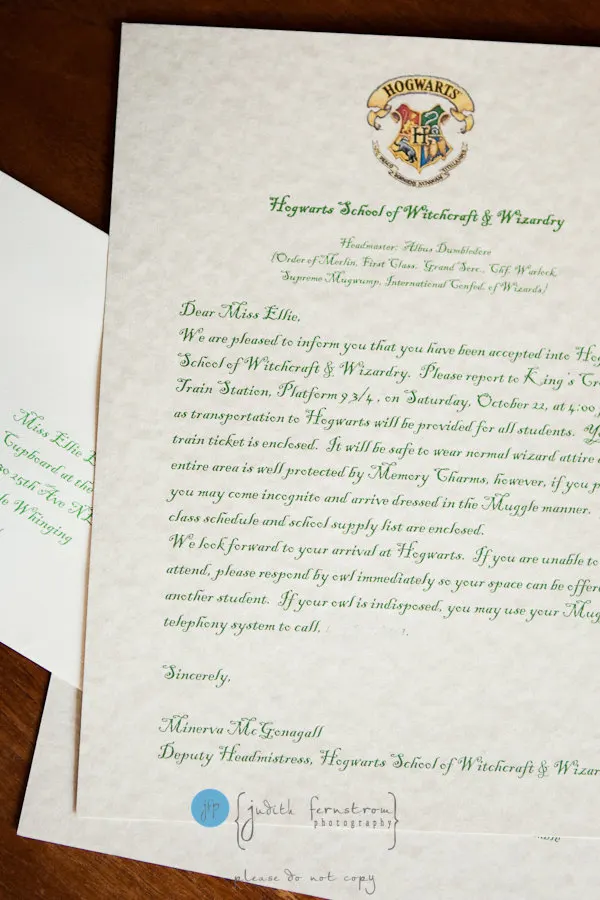 HOGWARTS
H
Hogwarts School of Witchcraft & Wizardry
Headmaster: Albus Dumbledore
(Order of Merlin, First Class, Grand Sorc., Chf. Warlock,
Supreme Mugwump, International Confed. of Wizards)
Dear Miss Ellie,
We are pleased to inform you that you have been accepted into Hog
School of Witchcraft & Wizardry. Please report to King's Cro
Train Station, Platform 9 3/4, on Saturday, October 22, at 4:00
as transportation to Hogwarts will be provided for all students. Y
train ticket is enclosed. It will be safe to wear normal wizard attire
entire area is well protected by Memory Charms, however, if you p
you may come incognito and arrive dressed in the Muggle manner.
class schedule and school supply list are enclosed.
We look forward to your arrival at Hogwarts. If you are unable to
attend, please respond by owl immediately so your space can be offere
another student. If your owl is indisposed, you may use your Mug
telephony system to call,
Sincerely,
Minerva McGonagall
Deputy Headmistress, Hogwarts School of Witchcraft & Wizar
Miss Ellie
Cupboard at the
25th Ave NE
le Whinging
jfp
{judith fernstrom}
photography
please do not copy